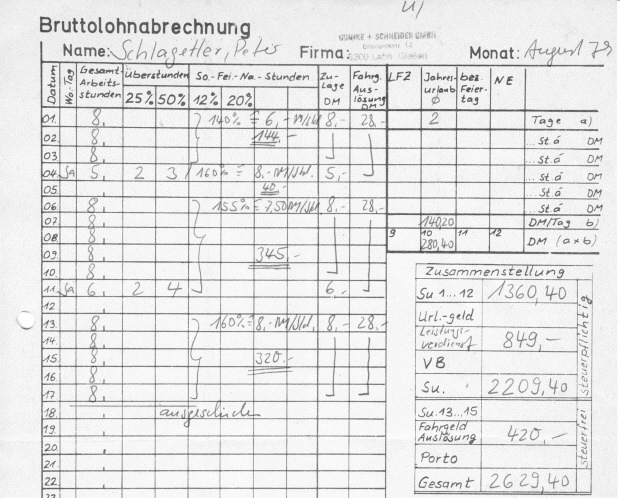 4)
Bruttolohnabrechnung
Name: Schlagetter, Peter Firma: GÜNKE + SCHNEIDER GMBH Monat: August 79
6300 Lahn - Gießen
Datum Wo.-Tag Gesamt-Arbeits-stunden Überstunden So.-Fei.-Na.-Stunden Zu-lage DM Fahrg. Aus-lösung DM LFZ Jahres-urlaub Ø bez. Feier-tag NE
25% 50% 12% 20%
01. 8, 140% = 6,- DM/Std 8,- 28,- 2 Tage a)
02. 8, 144,- ...St á DM
03. 8, ...St á DM
04. Sa 5, 2 3 160% = 8,- DM/Std. 5,- ...St á DM
05. 40,- ...St á DM
06. 8, 155% = 7,50 DM/Std 8,- 28,- ...St á DM
07. 8, 140,20 DM/Tag b)
08. 8, 9 10 280,40 11 12 DM (a×b)
09. 8, 345,-
10. 8,
11. Sa 6, 2 4 6,-
12.
13. 8, 160% = 8,- DM/Std. 8,- 28,-
14. 8,
15. 8, 320,-
16. 8,
17. 8,
18. ausgeschieden
19.
20.
21.
22.
Zusammenstellung
Su 1...12 1360,40
Url.-geld
Leistungs-verdienst 849,-
VB
Su. 2209,40
steuerpflichtig
Su. 13...15
Fahrgeld Auslösung 420,-
Porto
Gesamt 2629,40
steuerfrei